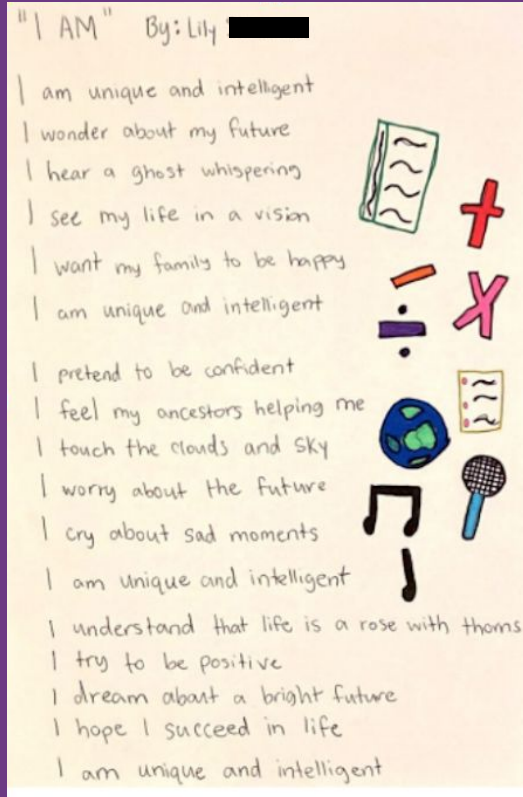 "I AM" By: Lily
I am unique and intelligent
I wonder about my future
I hear a ghost whispering
I see my life in a vision
I want my family to be happy
I am unique and intelligent
I pretend to be confident
I feel my ancestors helping me
I touch the clouds and sky
I worry about the future
I cry about sad moments
I am unique and intelligent
I understand that life is a rose with thorns
I try to be positive
I dream about a bright future
I hope I succeed in life
I am unique and intelligent